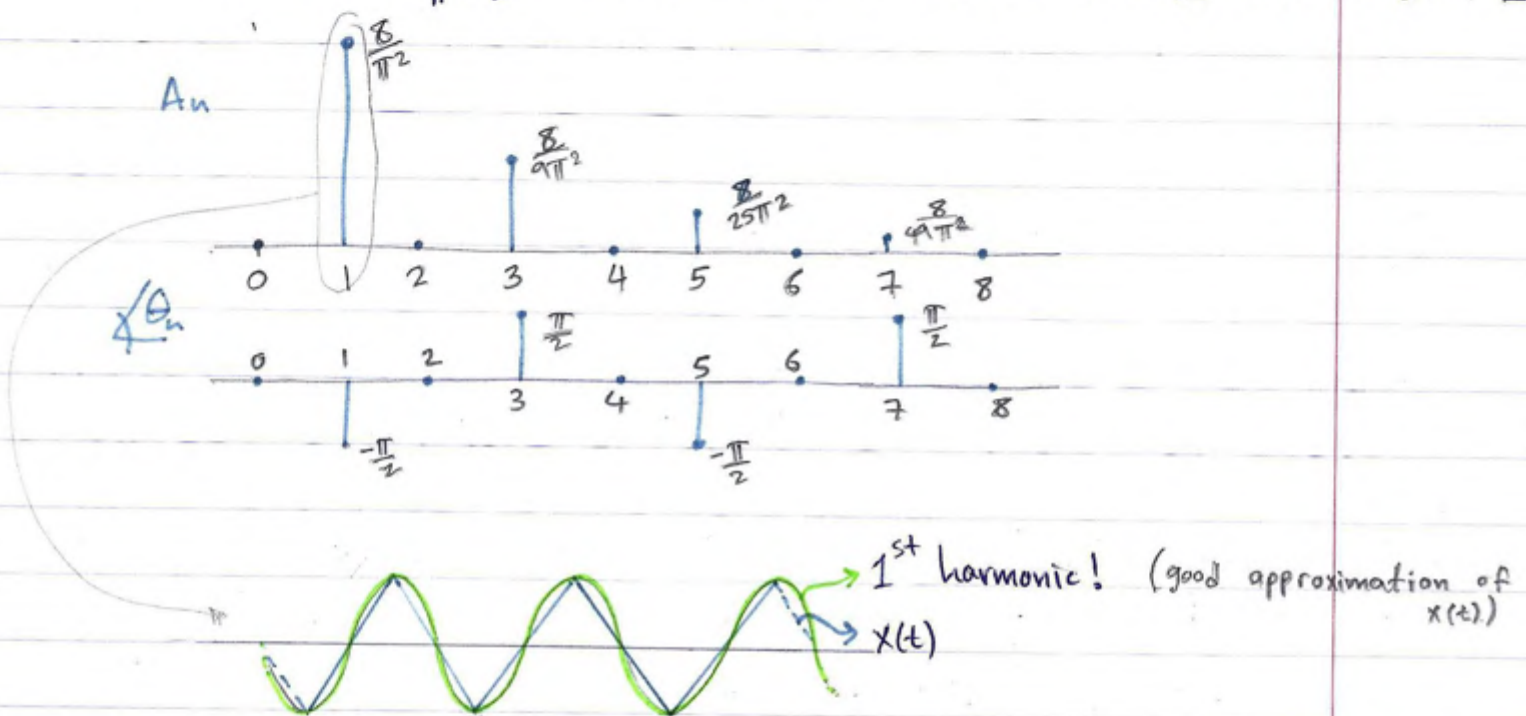 8/π²
An
8/9π²
8/25π²
8/49π²
0 1 2 3 4 5 6 7 8
∠θn
π/2
π/2
0 1 2 3 4 5 6 7 8
-π/2
-π/2
1st harmonic! (good approximation of
x(t))
x(t)